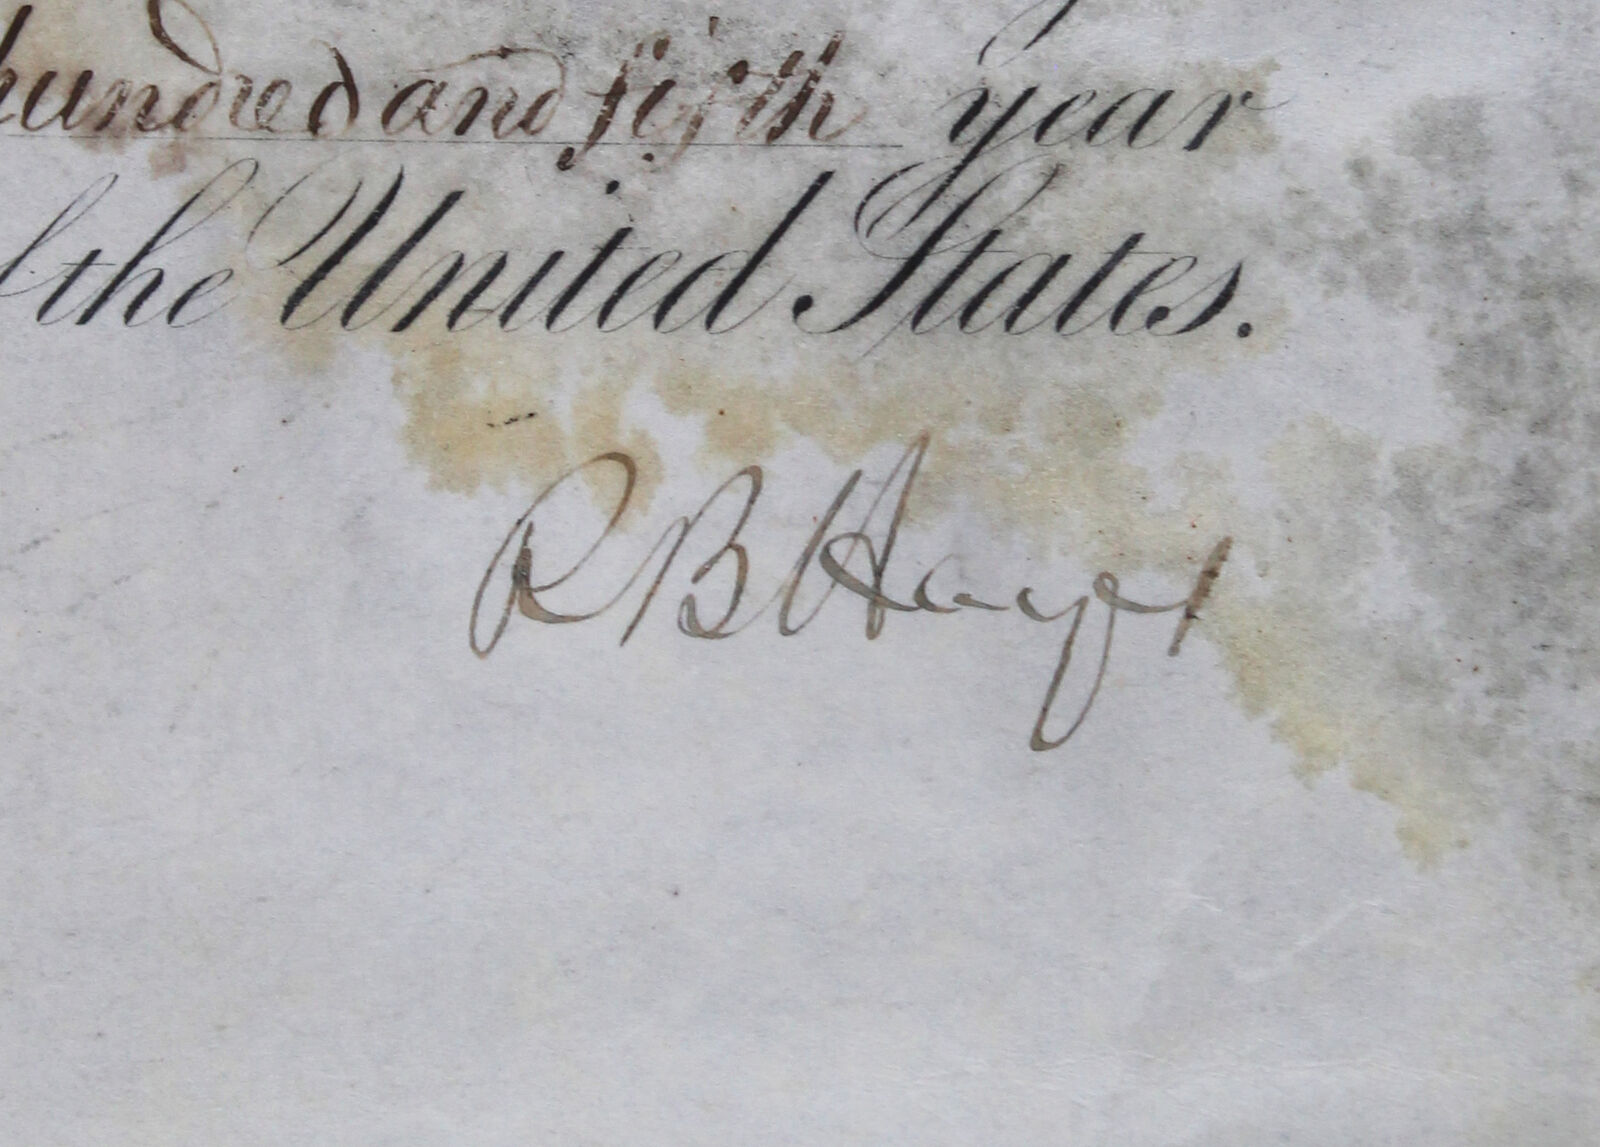 hundred and fifth year
of the United States.
R B Hayes